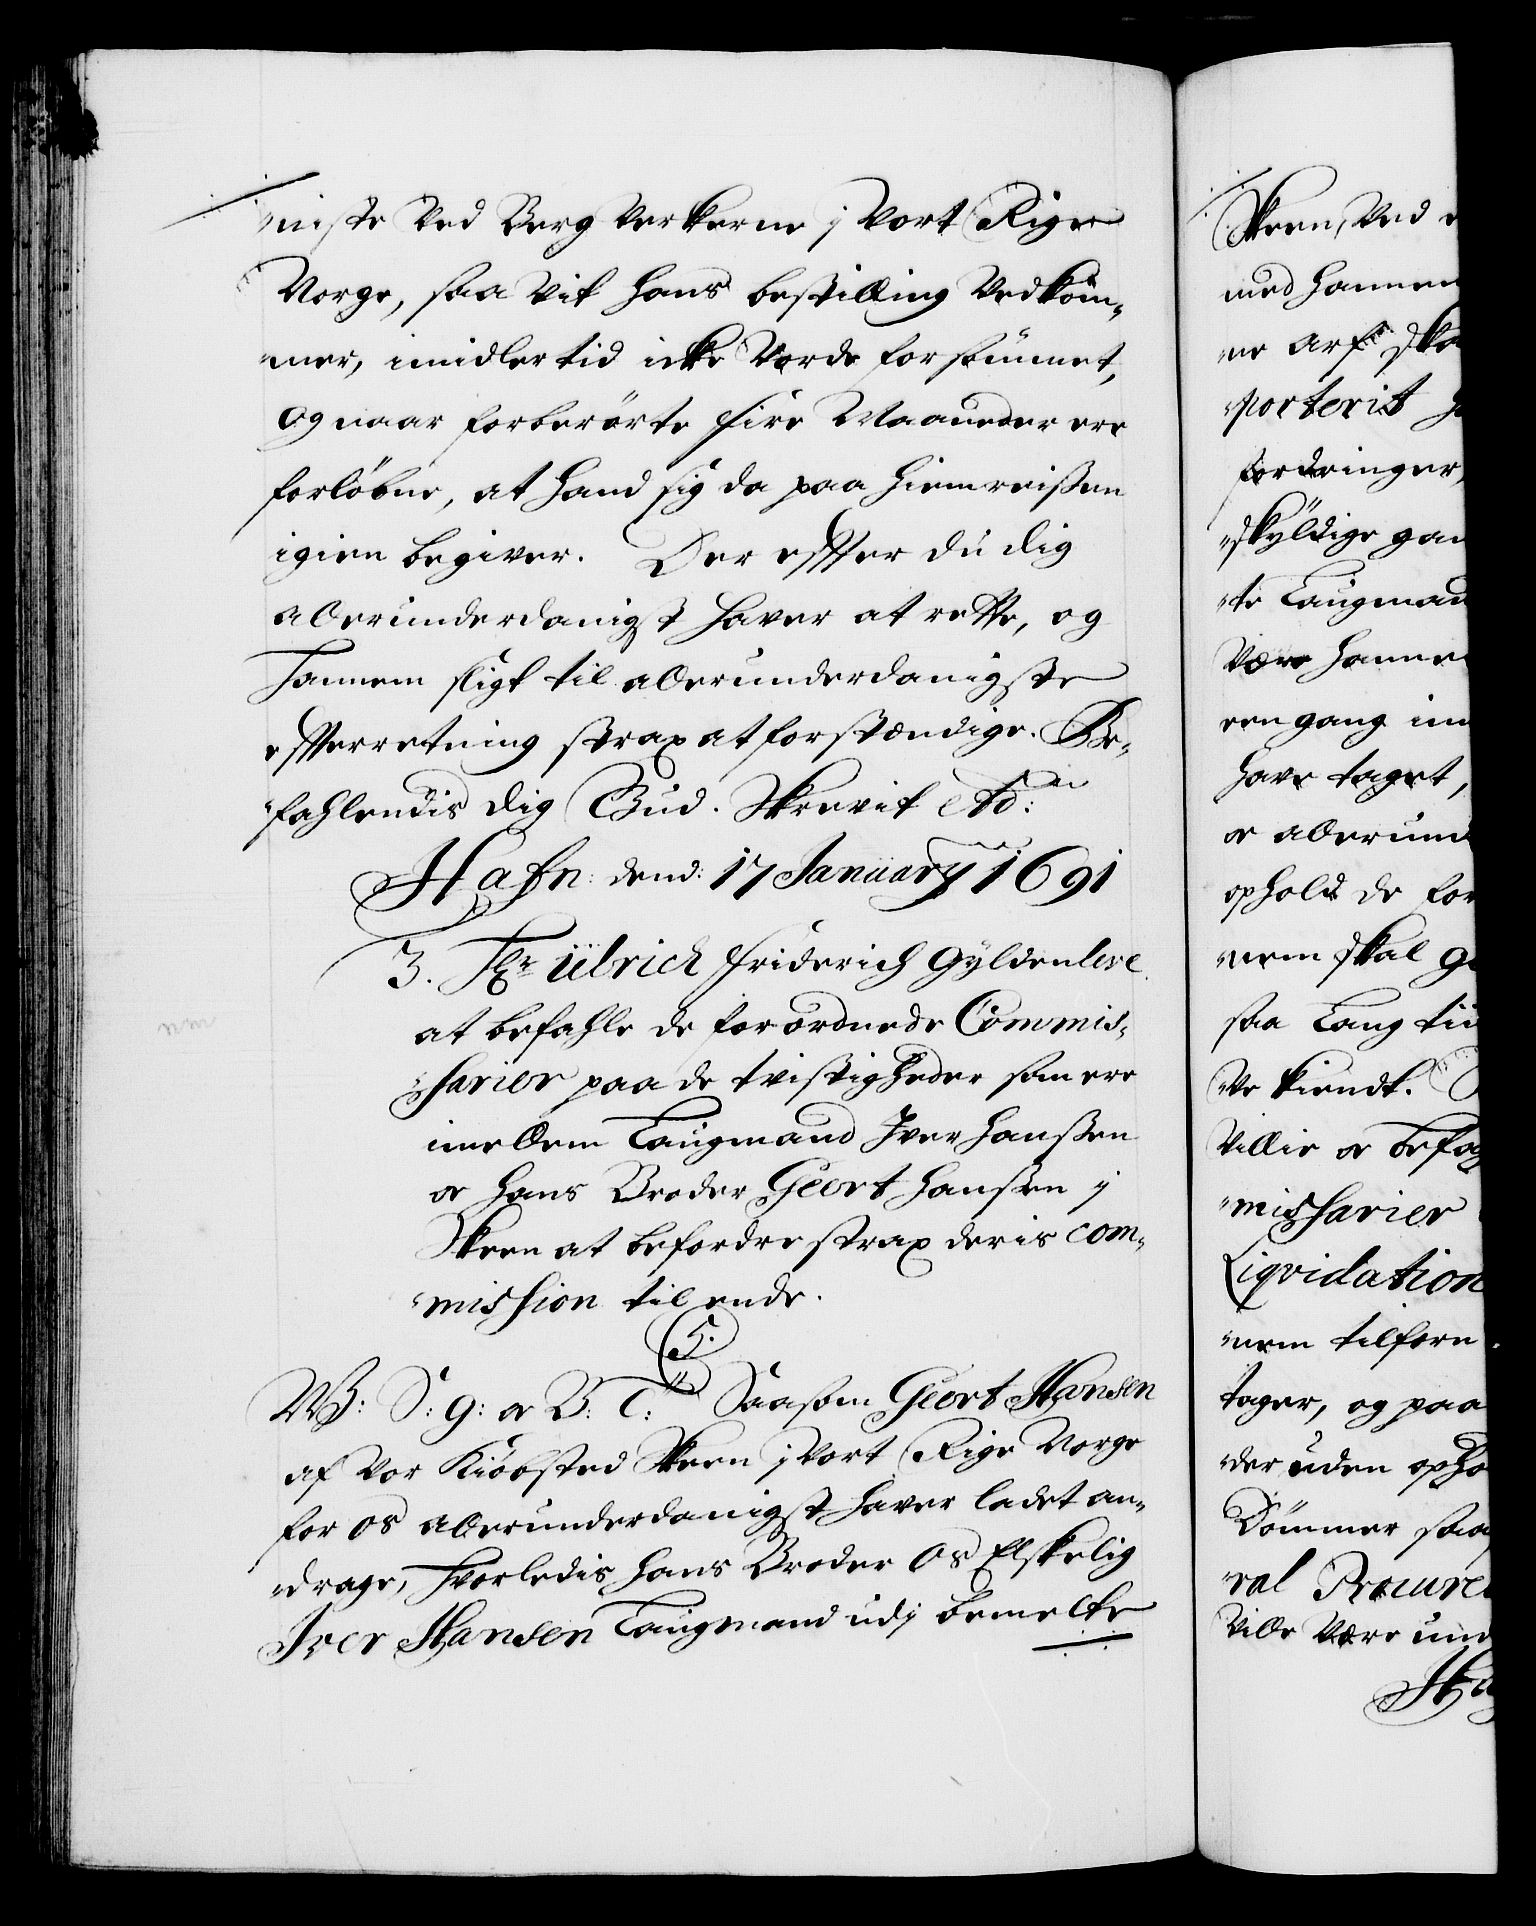 niste Ved Berg Verkerne j Vort Rige
Norge, saa vit hans bestilling Vedkom-
mer, imidlertid icke Vorde forsømmet,
og naar forberørte fire Maaneder ere
forløbne, at hand sig da paa hiemreisen
igien begiver. Der efter du dig
allerunderdanigst haver at rette, og
hannem sligt til allerunderdanigste
efterretning strax at forstændige. Be-
fahlendis dig Gud. Skrevit
Hafn: dend: 17 January 1691
3. Hr Ulrich Friderich Gyldenlewe
at befahle de forordnede Commis-
sarier paa de tvistigheder som ere
imellem Laugmand Iver Hanssen
oc hans Broder Geert Hanssen j
Skeen at befordre strax deris com-
mission til ende.
5.
W: S: G: oc B: C: Saasom Geert Hansen
af Vor Kiøbsted Skeen j Vort Rige Norge
for os allerunderdanigst haver ladet an-
drage, hvorledis hans Broder Os Elskelig
Iver Hansen Laugmand udj bemelte
Skeen, Ved
med hannem
ne arf
porterit
fordringer,
skyldige
te Laugmand
Være hannem
een gang
have taget,
oc
ophold de for
nem skal
saa Lang
Ve kiendt.
Villie oc befa
missarier
Liqvidation
nem tilforn
tager, og paa
der uden opho
Dømmer saa
ral
Ville Være